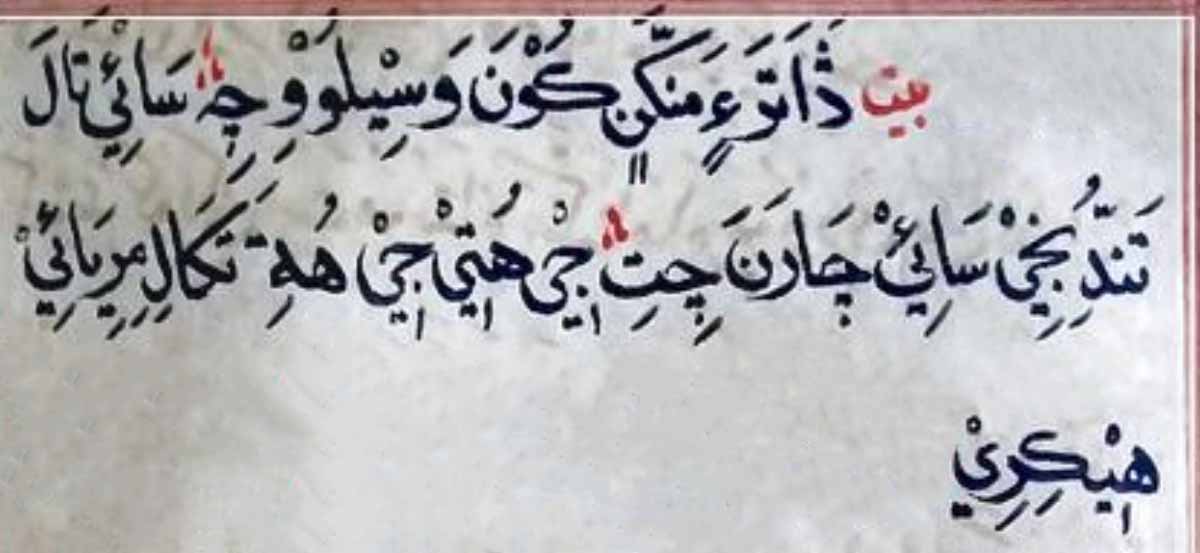 بيت ڎَاتَرَءٍ مَنکَّنٍ کُوْنَ وَسِيْلُوْ وِچِ سَائِيْ تَالَ
تَنّدِ بُخِيْ سَائِيْ چَارَنَ چِتِ جِيْ هُتِيْ جِيْ هُهِ تَکَالِ مِرِيَائِيْ
هِيْکِرِيْ